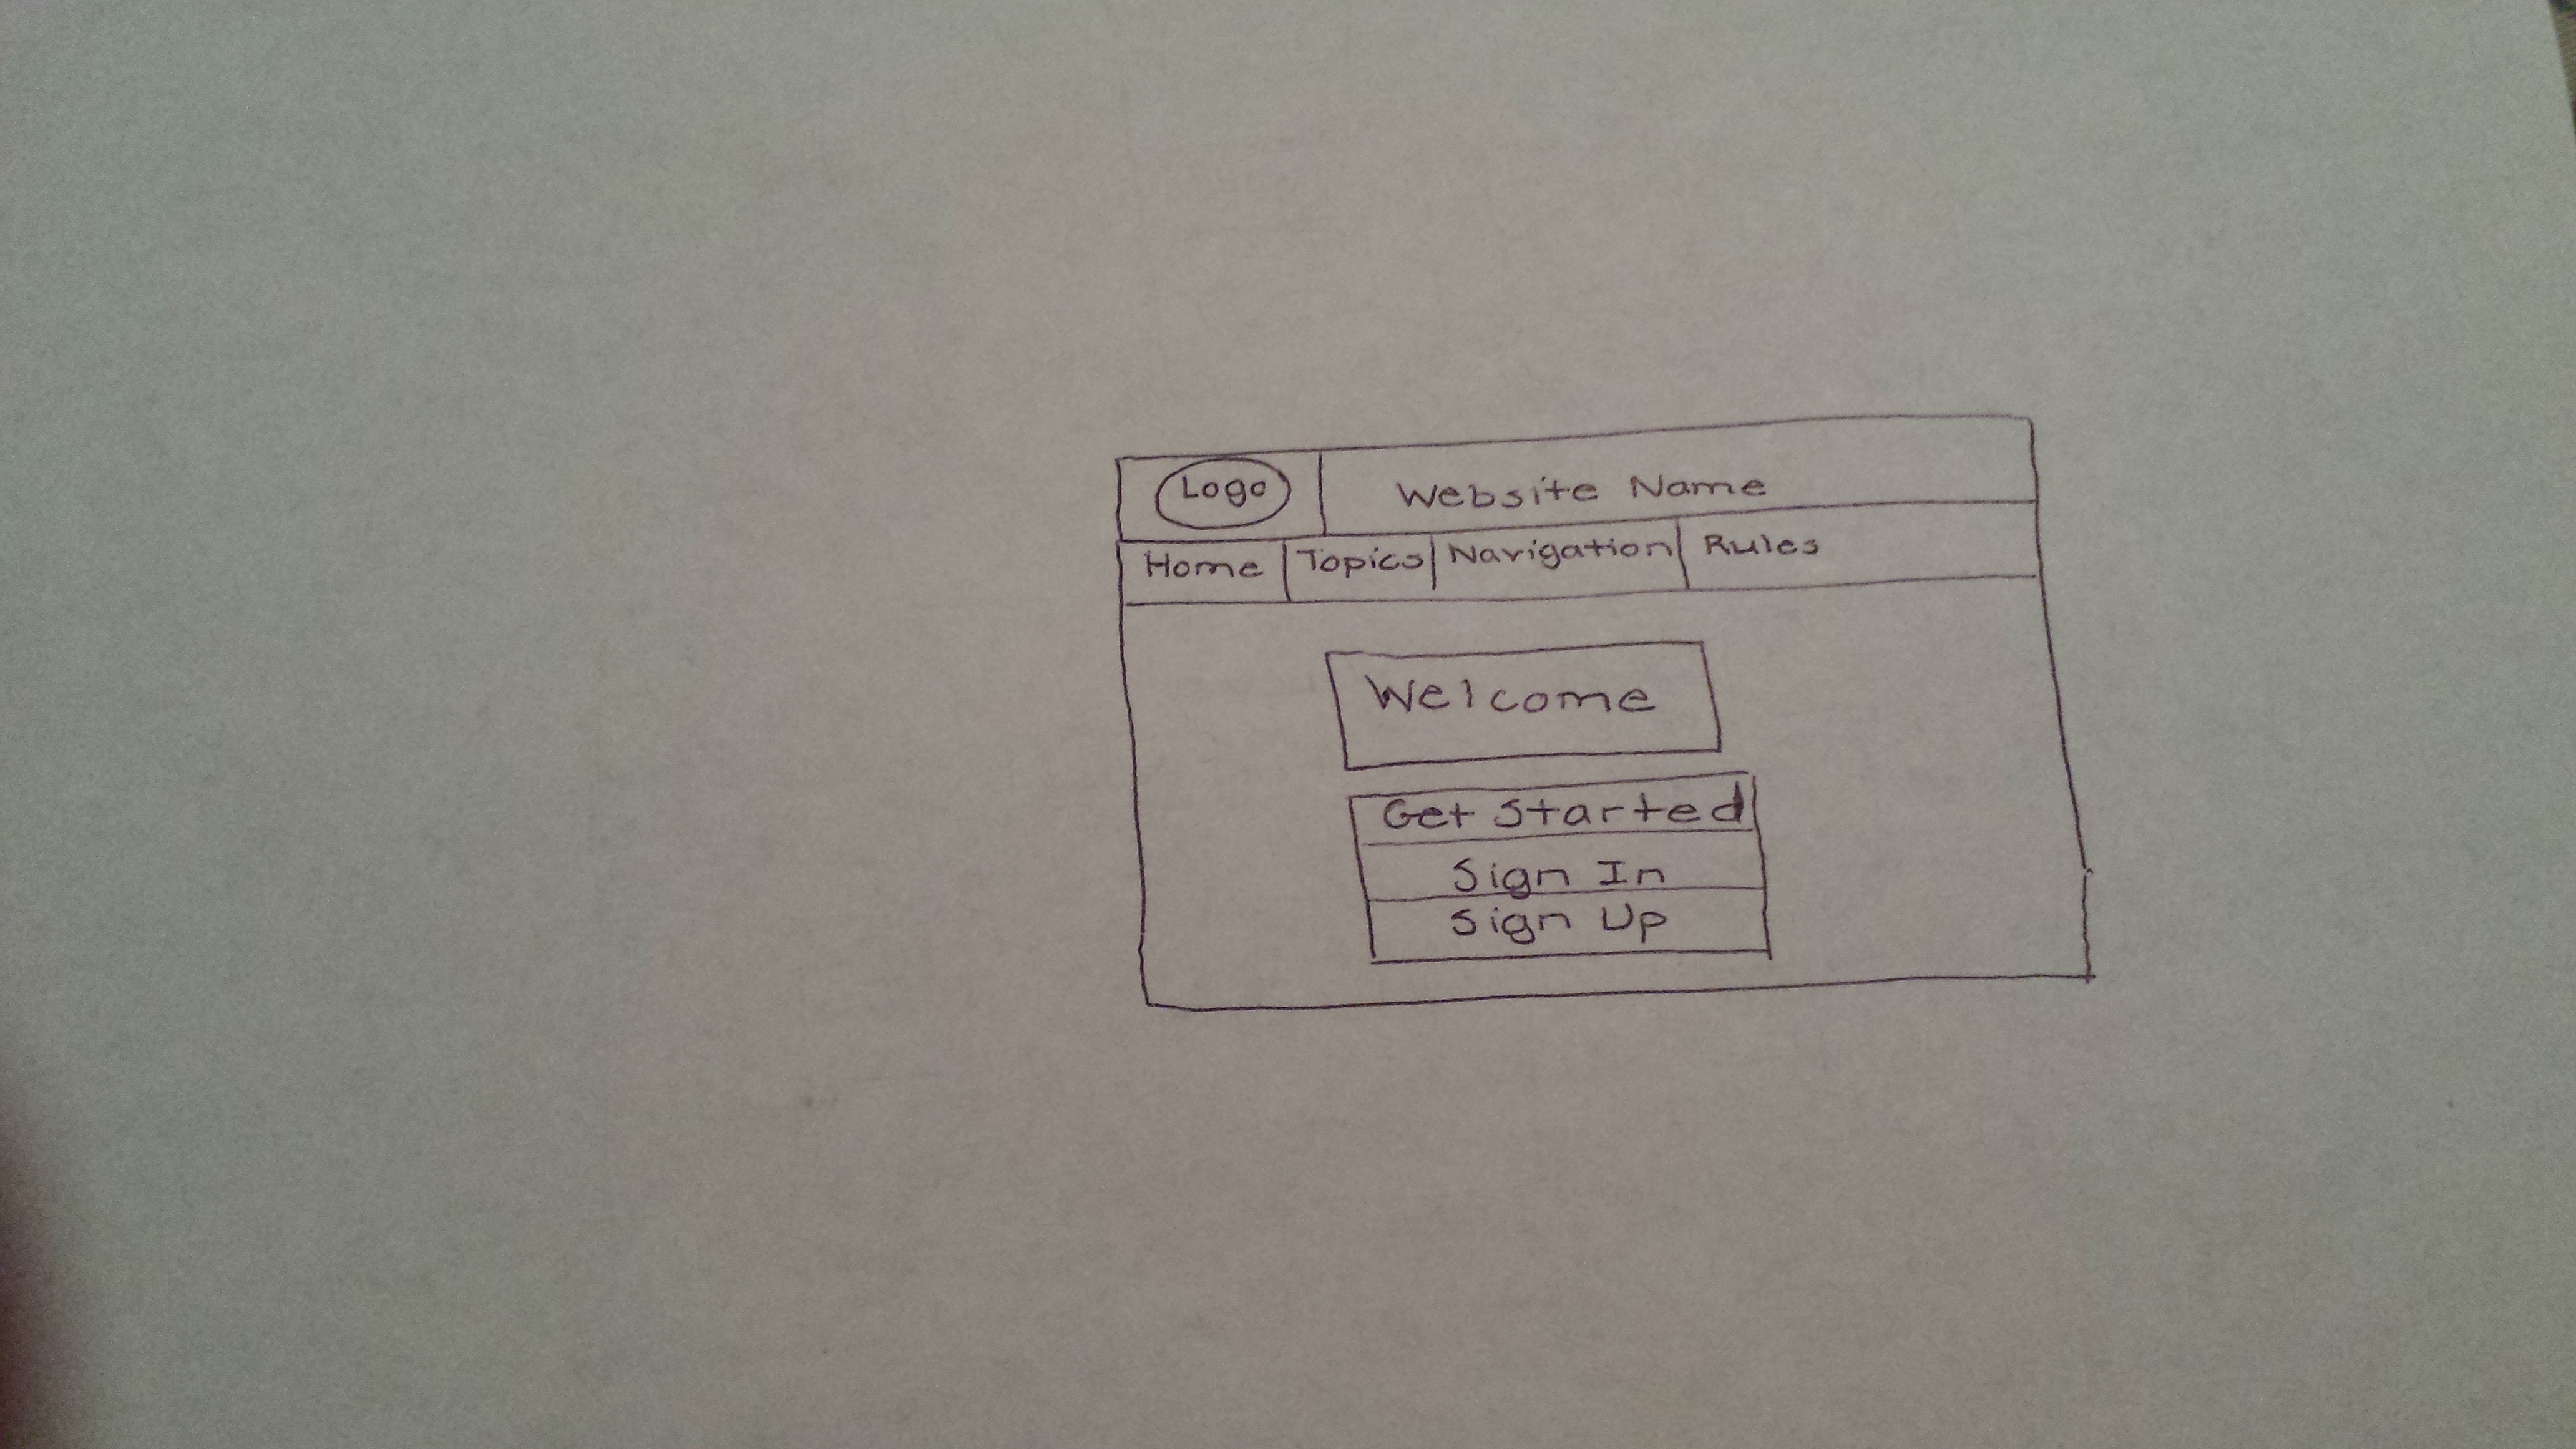 Logo
Website Name
Home Topics Navigation Rules
Welcome
Get Started
Sign In
Sign Up